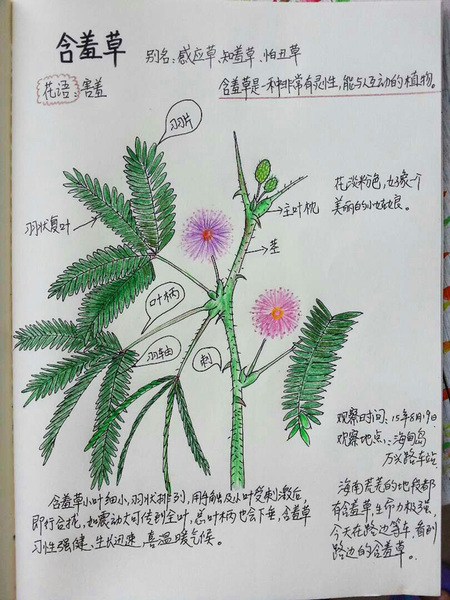 含羞草
别名:感应草、知羞草、怕丑草
花语:害羞
含羞草是一种非常有灵性,能与人互动的植物。
羽片
花淡粉色,好像一个
美丽的小姑娘。
主叶枕
羽状复叶
茎
叶柄
羽轴
刺
观察时间:15年8月19日
观察地点:海甸岛
万兴路车站
含羞草小叶细小,羽状排列,用手触及小叶受刺激后,
即行合拢,如震动大可传到全叶,总叶柄也会下垂,含羞草
习性强健、生长迅速,喜温暖气候。
海南荒芜的地段都
有含羞草,生命力极强,
今天在路边等车,看到
路边的含羞草。